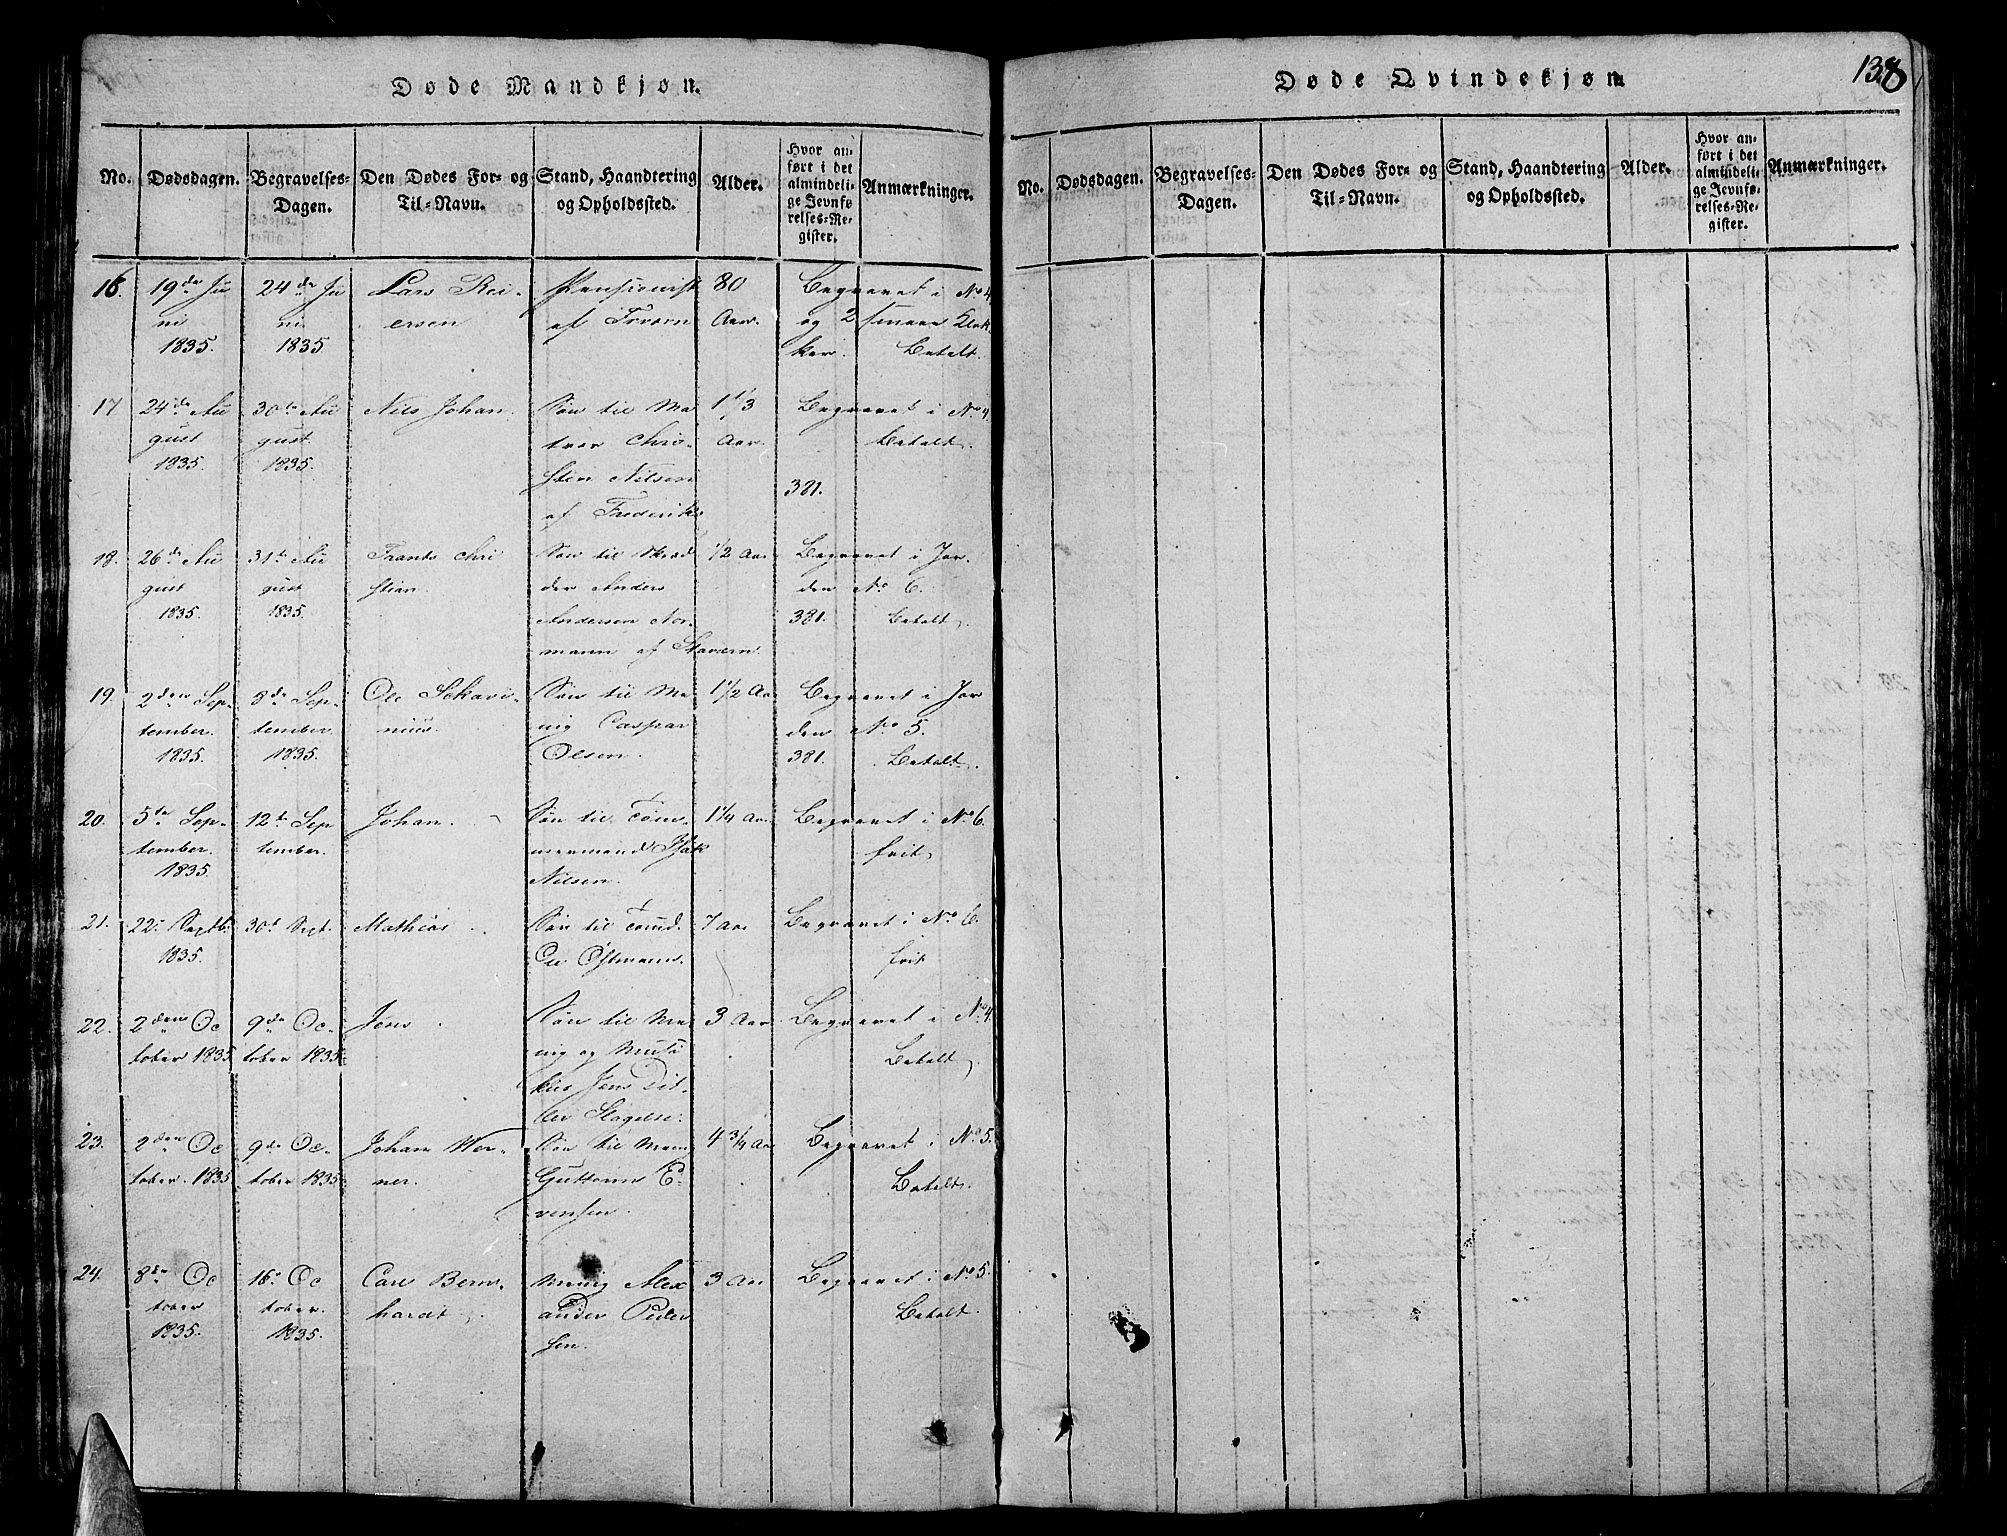 Døde Mandkjøn.
No.
Dødsdagen.
Begravelses-
Dagen.
Den Dødes For- og
Til-Navn.
Stand, Haandtering
og Opholdssted.
Alder.
Hvor an-
ført i det
almindeli-
ge Jevnfø
relses-Re-
gister.
Anmærkninger.
16.
19de Ju
ni
1835.
24de Ju
ni
1835
Lars Rei-
ersen
Pensionist
af
80
Aar.
Begravet i No 4
og 2 smaae Klok
ker. Betalt.
17
24de Au
gust
1835.
30te Au
gust.
1835.
Nils Johan.
Søn til Ma
tros Chri-
sten Nilsen
af Frederiks
1 1/3
Aar.
Begravet i No 4.
Betalt.
381.
18.
26de Au
gust
1835.
31te Au
gust
1835.
Frants Chri
stian.
Søn til Skræd
der Anders
Andersen Nor-
mann af Stavern.
1/2 Aar
Begravet i Jor-
den No 6.
381. Betalt.
19.
2den Sep-
tember.
1835.
8de Sep-
tember.
1835.
Ole
nius.
Søn til Me
nig Caspar
Olsen.
1 1/2 Aar
Begravet i Jor
den No 5.
381. Betalt.
20.
5te Sep-
tember.
1835.
12te Sep
tember.
Johan.
Søn til Tøm-
mermand Isak
Nilsen.
1 1/4 Aar.
Begravet i No 6.
frit.
21.
22. Septb.
1835.
30te Sept.
Mathias
Søn til Tømd.
Ole Østmann.
7 Aar
Begravet i No 6.
frit
22.
2den Oc
tober 1835.
9de Oc-
tober 1835.
Jens
Søn til Me-
nig og Musi
kus Jens Dit-
lev Slagelse.
3 Aar
Begravet i No 4.
Betalt.
23.
2den Oc
tober. 1835
9de Oc-
tober 1835
Johan Wer-
ner.
Søn til Men.
Guttorm E-
vensen.
4 3/4 Aar
Begravet i No 5.
Betalt.
24.
8de Oc
tober
1835.
16de Oc
tober.
1835.
Carl Bern-
hardt
Menig Alex
ander Peder
sen.
3 Aar
Begravet i No 5.
Betalt.
Døde Qvindekjøn
138
No.
Dødsdagen.
Begravelses-
Dagen.
Den Dødes For- og
Til-Navn.
Stand, Haandtering
og Opholdssted.
Alder.
Hvor an-
ført i det
almindeli-
ge Jevnfø-
relses-Re-
gister.
Anmærkninger.